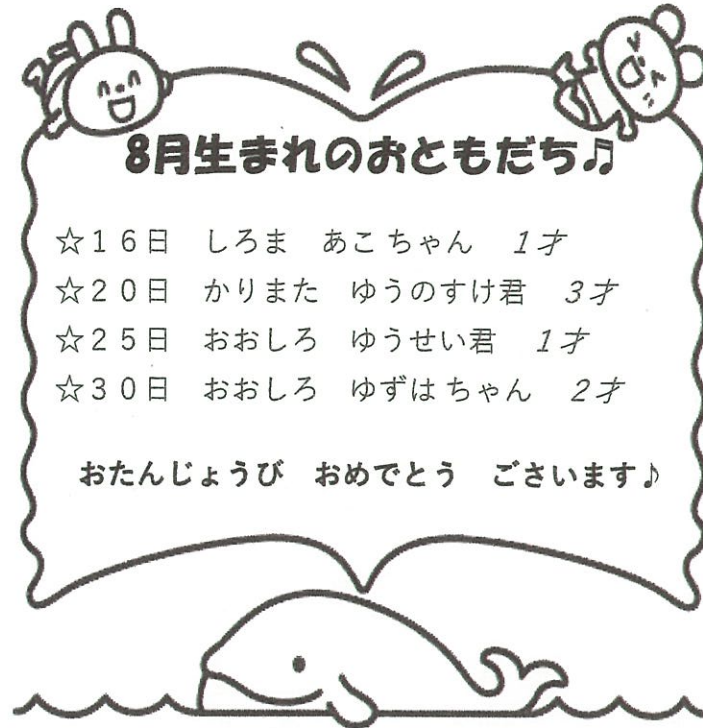 8月生まれのおともだち♫
☆16日　しろま　あこちゃん　1才
☆20日　かりまた　ゆうのすけ君　3才
☆25日　おおしろ　ゆうせい君　1才
☆30日　おおしろ　ゆずはちゃん　2才
おたんじょうび　おめでとう　ごさいます♪